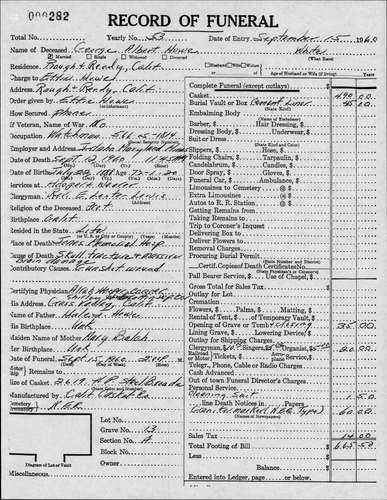 000282
RECORD OF FUNERAL
Total No. Yearly No. 53 Date of Entry September 15 1960
Name of Deceased George Albert Howe White
Married Single Widowed Divorced (What Race)
Residence Rough & Ready, Calif.
Charge to Effie Howe
Address Rough & Ready, Calif.
Order given by Effie Howe
How Secured phone
If Veteran, Name of War No.
Occupation Watchman
Employer and Address
Date of Death Sept. 12, 1960 11:45 PM
Date of Birth 72-1-20
Services at Hooper & Weaver
Clergyman Rev. E. Lester Louis
Religion of the Deceased Prot.
Birthplace Calif.
Resided in the State Life
Place of Death Jones Memorial Hosp
Cause of Death Skull fracture & massive
brain damage
Contributory Causes Gunshot wound
Certifying Physician
His Address Grass Valley, Calif.
Name of Father Howe
His Birthplace Unk
Maiden Name of Mother Mary Balch
Her Birthplace Unk
Date of Funeral Sept 15, 1960 2 P.M.
Remains to
Size of Casket 2619
Manufactured by Calif Casket Co.
Cemetery N.E.R.
Lot No.
Grave No. 13
Section No. A
Block No.
Owner
Diagram of Lot or Vault
Miscellaneous
Complete Funeral (except outlays)
Casket 490 00
Burial Vault or Box Cement Liner 45 00
(State Kind)
Embalming Body
Barber, Hair Dressing,
Dressing Body, Underwear,
Suit or Dress
(State Kind and Color)
Slippers, Hose,
Folding Chairs, Tarpaulin,
Candelabrum, Candles,
Door Spray, Gloves,
Funeral Car, Ambulance,
Limousines to Cemetery @ $
Extra Limousines @ $
Autos to R. R. Station @ $
Getting Remains from
Taking Remains to
Trip to Coroner's Inquest
Delivering Box to
Deliver Flowers to
Removal Charges
Procuring Burial Permit
(State Number and District)
Certif. Copies of Death Certificates No.
Pall Bearer Service, Use of Chapel,
Gross Total for Sales Tax
Outlay for Lot
Cremation
Flowers, Palms, Matting,
Rental of Tent, of Temporary Vault,
Opening of Grave or Tomb 35 00
Lining Grave, Lowering Device
Outlay for Shipping Charges
Clergyman, Singers, Organist, 20 00
Tickets, Aeroplane Service
Telegr., Phone, Cable or Radio Charges
Cash Advanced
Out of town Funeral Director's Charges
Personal Service
Cleaning Suit 1 50
line Death Notices in Papers
60 00
(Names of Newspapers)
Sales Tax 14 00
Total Footing of Bill 665 50
Less
Balance
Entered into Ledger, page or below.